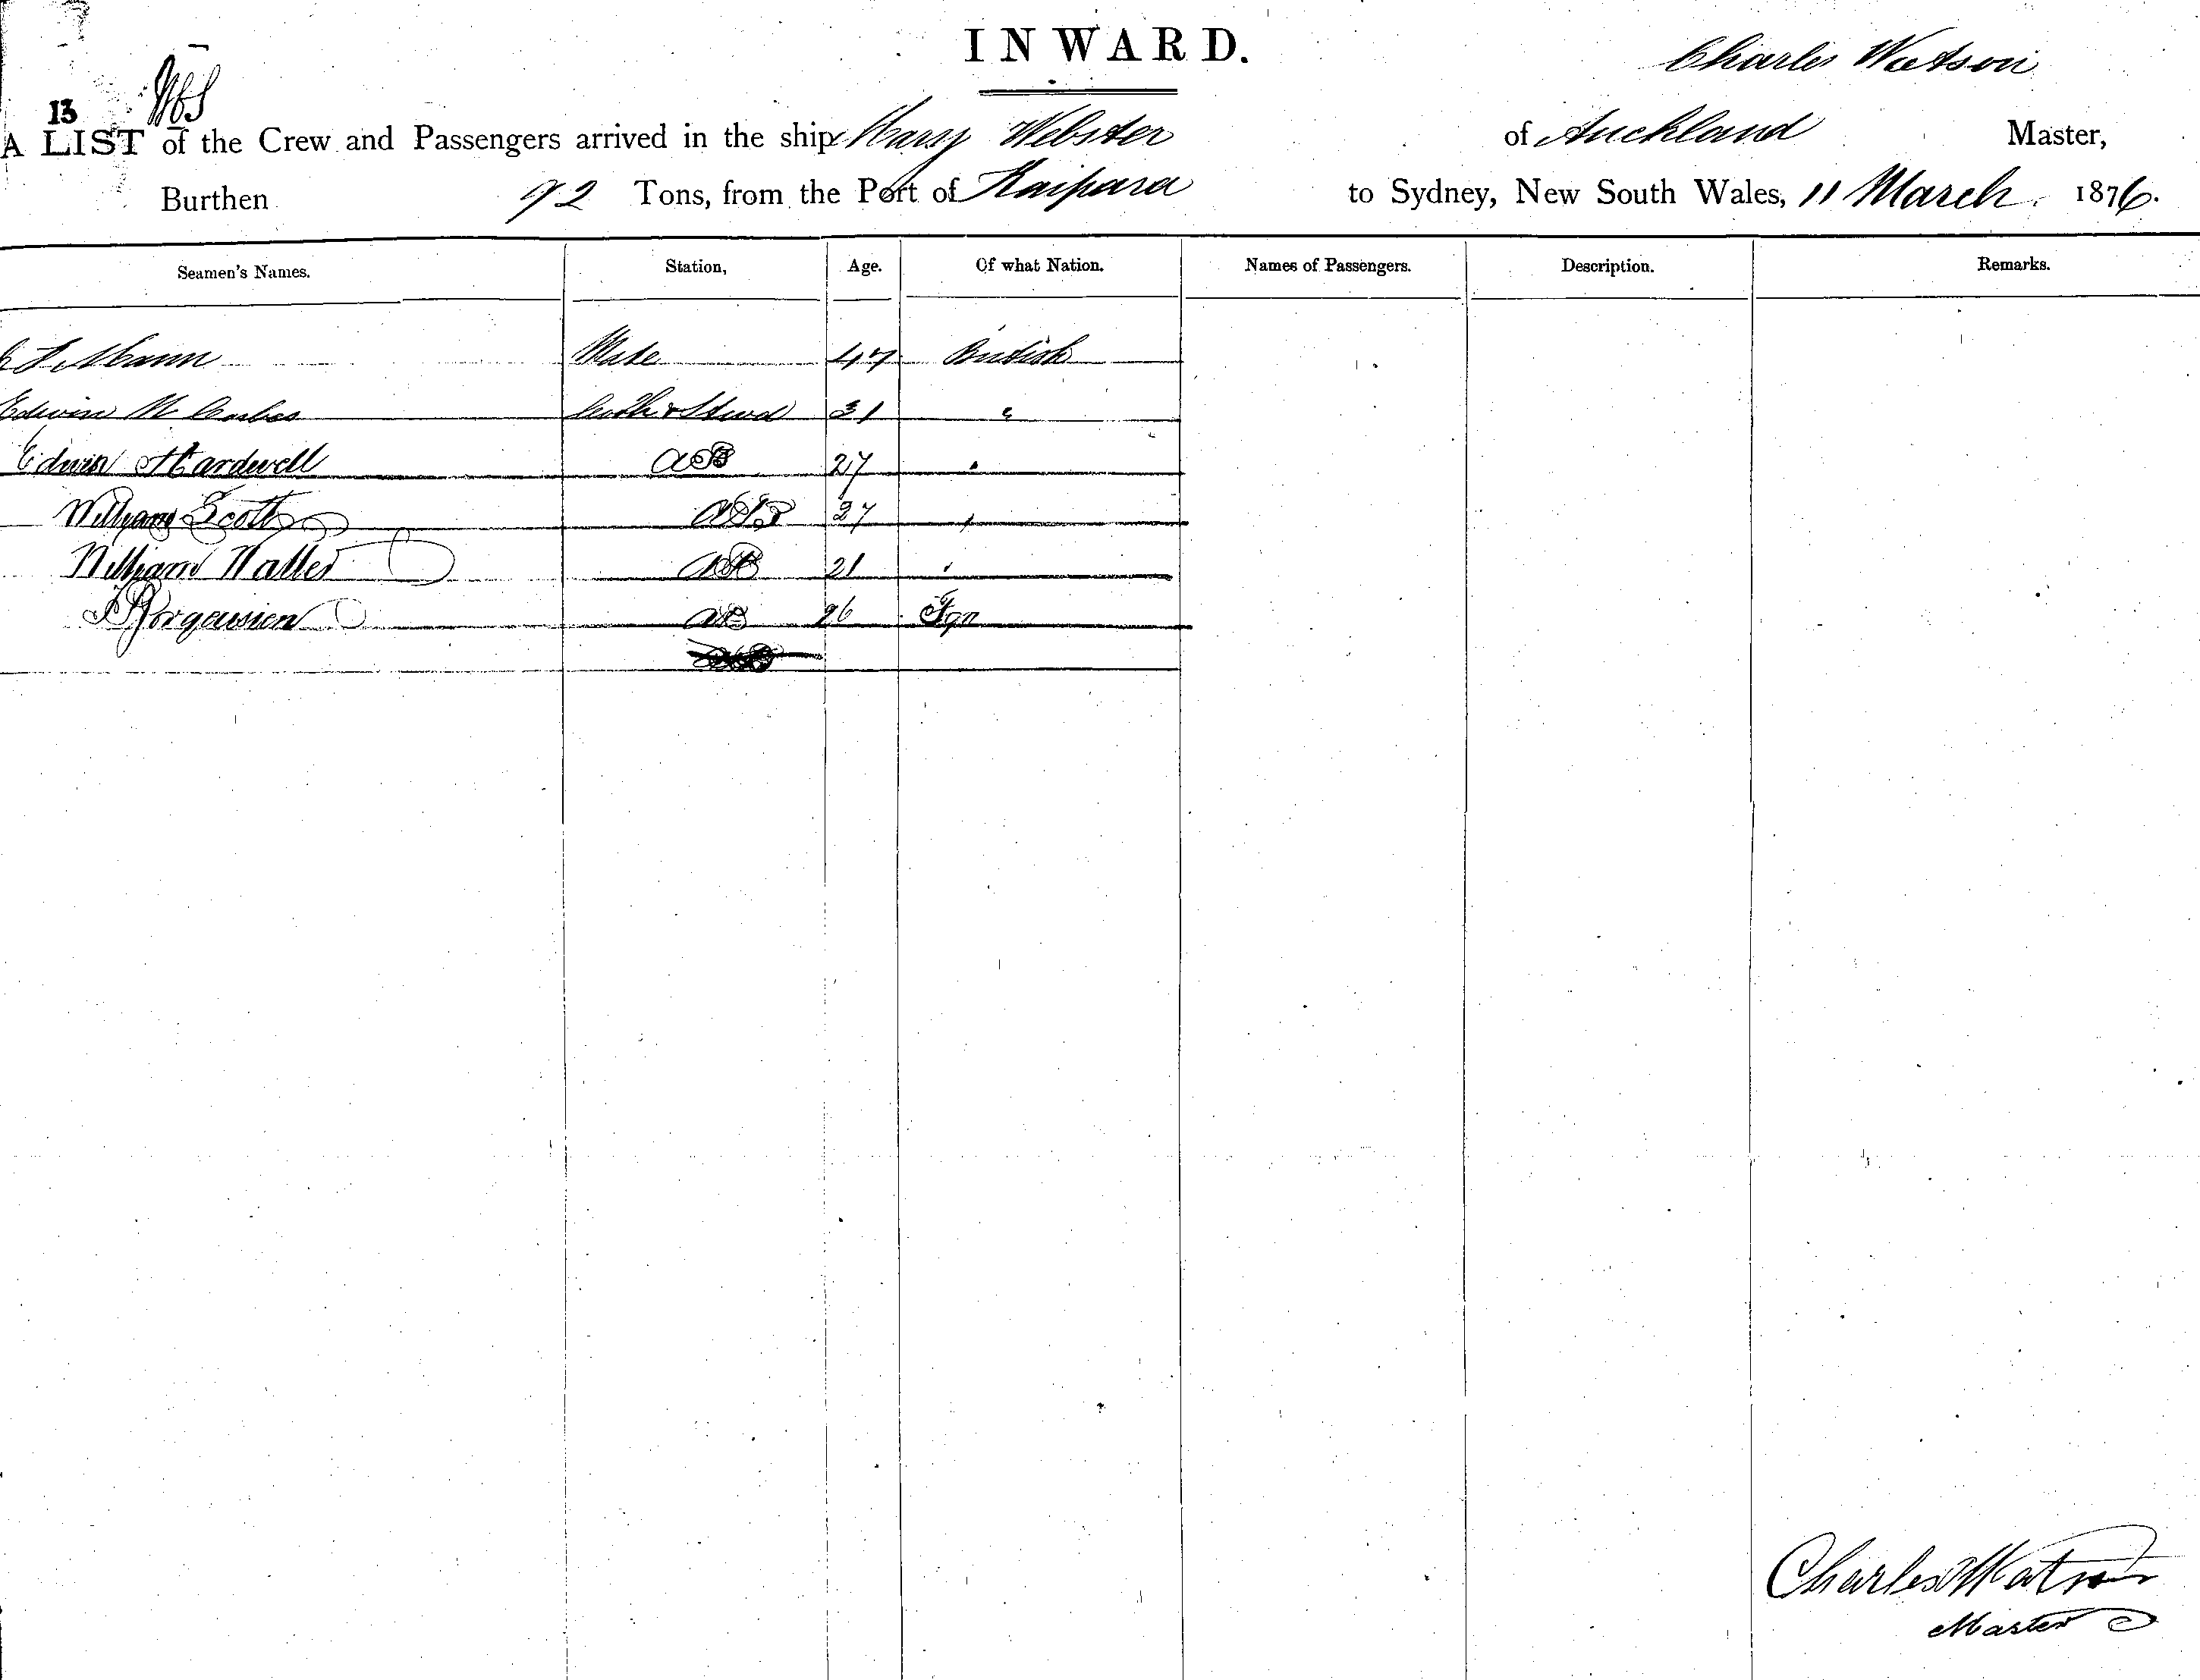 INWARD.
Charles Watson
13
A LIST of the Crew and Passengers arrived in the ship Mary Webster of Auckland Master,
Burthen 92 Tons, from the Port of Kaipara to Sydney, New South Wales, 11 March. 1876.
Seamen's Names. Station, Age. Of what Nation. Names of Passengers. Description. Remarks.
Mann Mate 47 British
Edwin 31 "
Edwin Hardwell AB 27 "
William Scott AB 27 "
William Waller AB 21 "
AB 26 Fgn
Charles Watson
Master